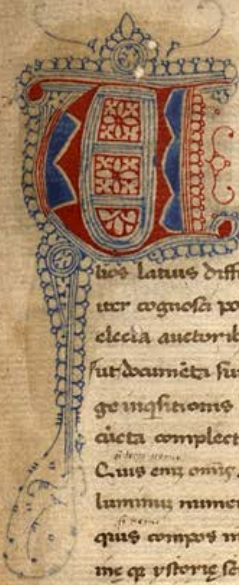 U
lios latius diff
iter cognosci po
electa auctorib
ut documēta su
ge inq̄sitionis
cūcta complect
Quis em̄ omīs
luminū numer
quis compos m
me q̄ ystorie sc